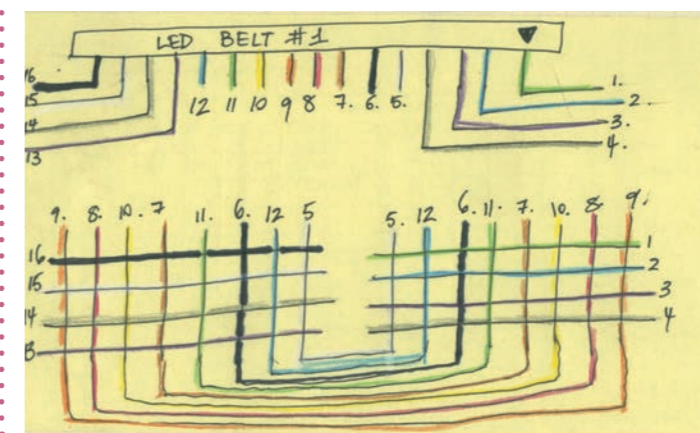 LED BELT #1
16
15
14
13
12 11 10 9 8 7. 6. 5.
1.
2.
3.
4.
9. 8. 10. 7 11. 6. 12 5 5. 12 6. 11. 7. 10. 8. 9.
16
15
14
1
2
3
4